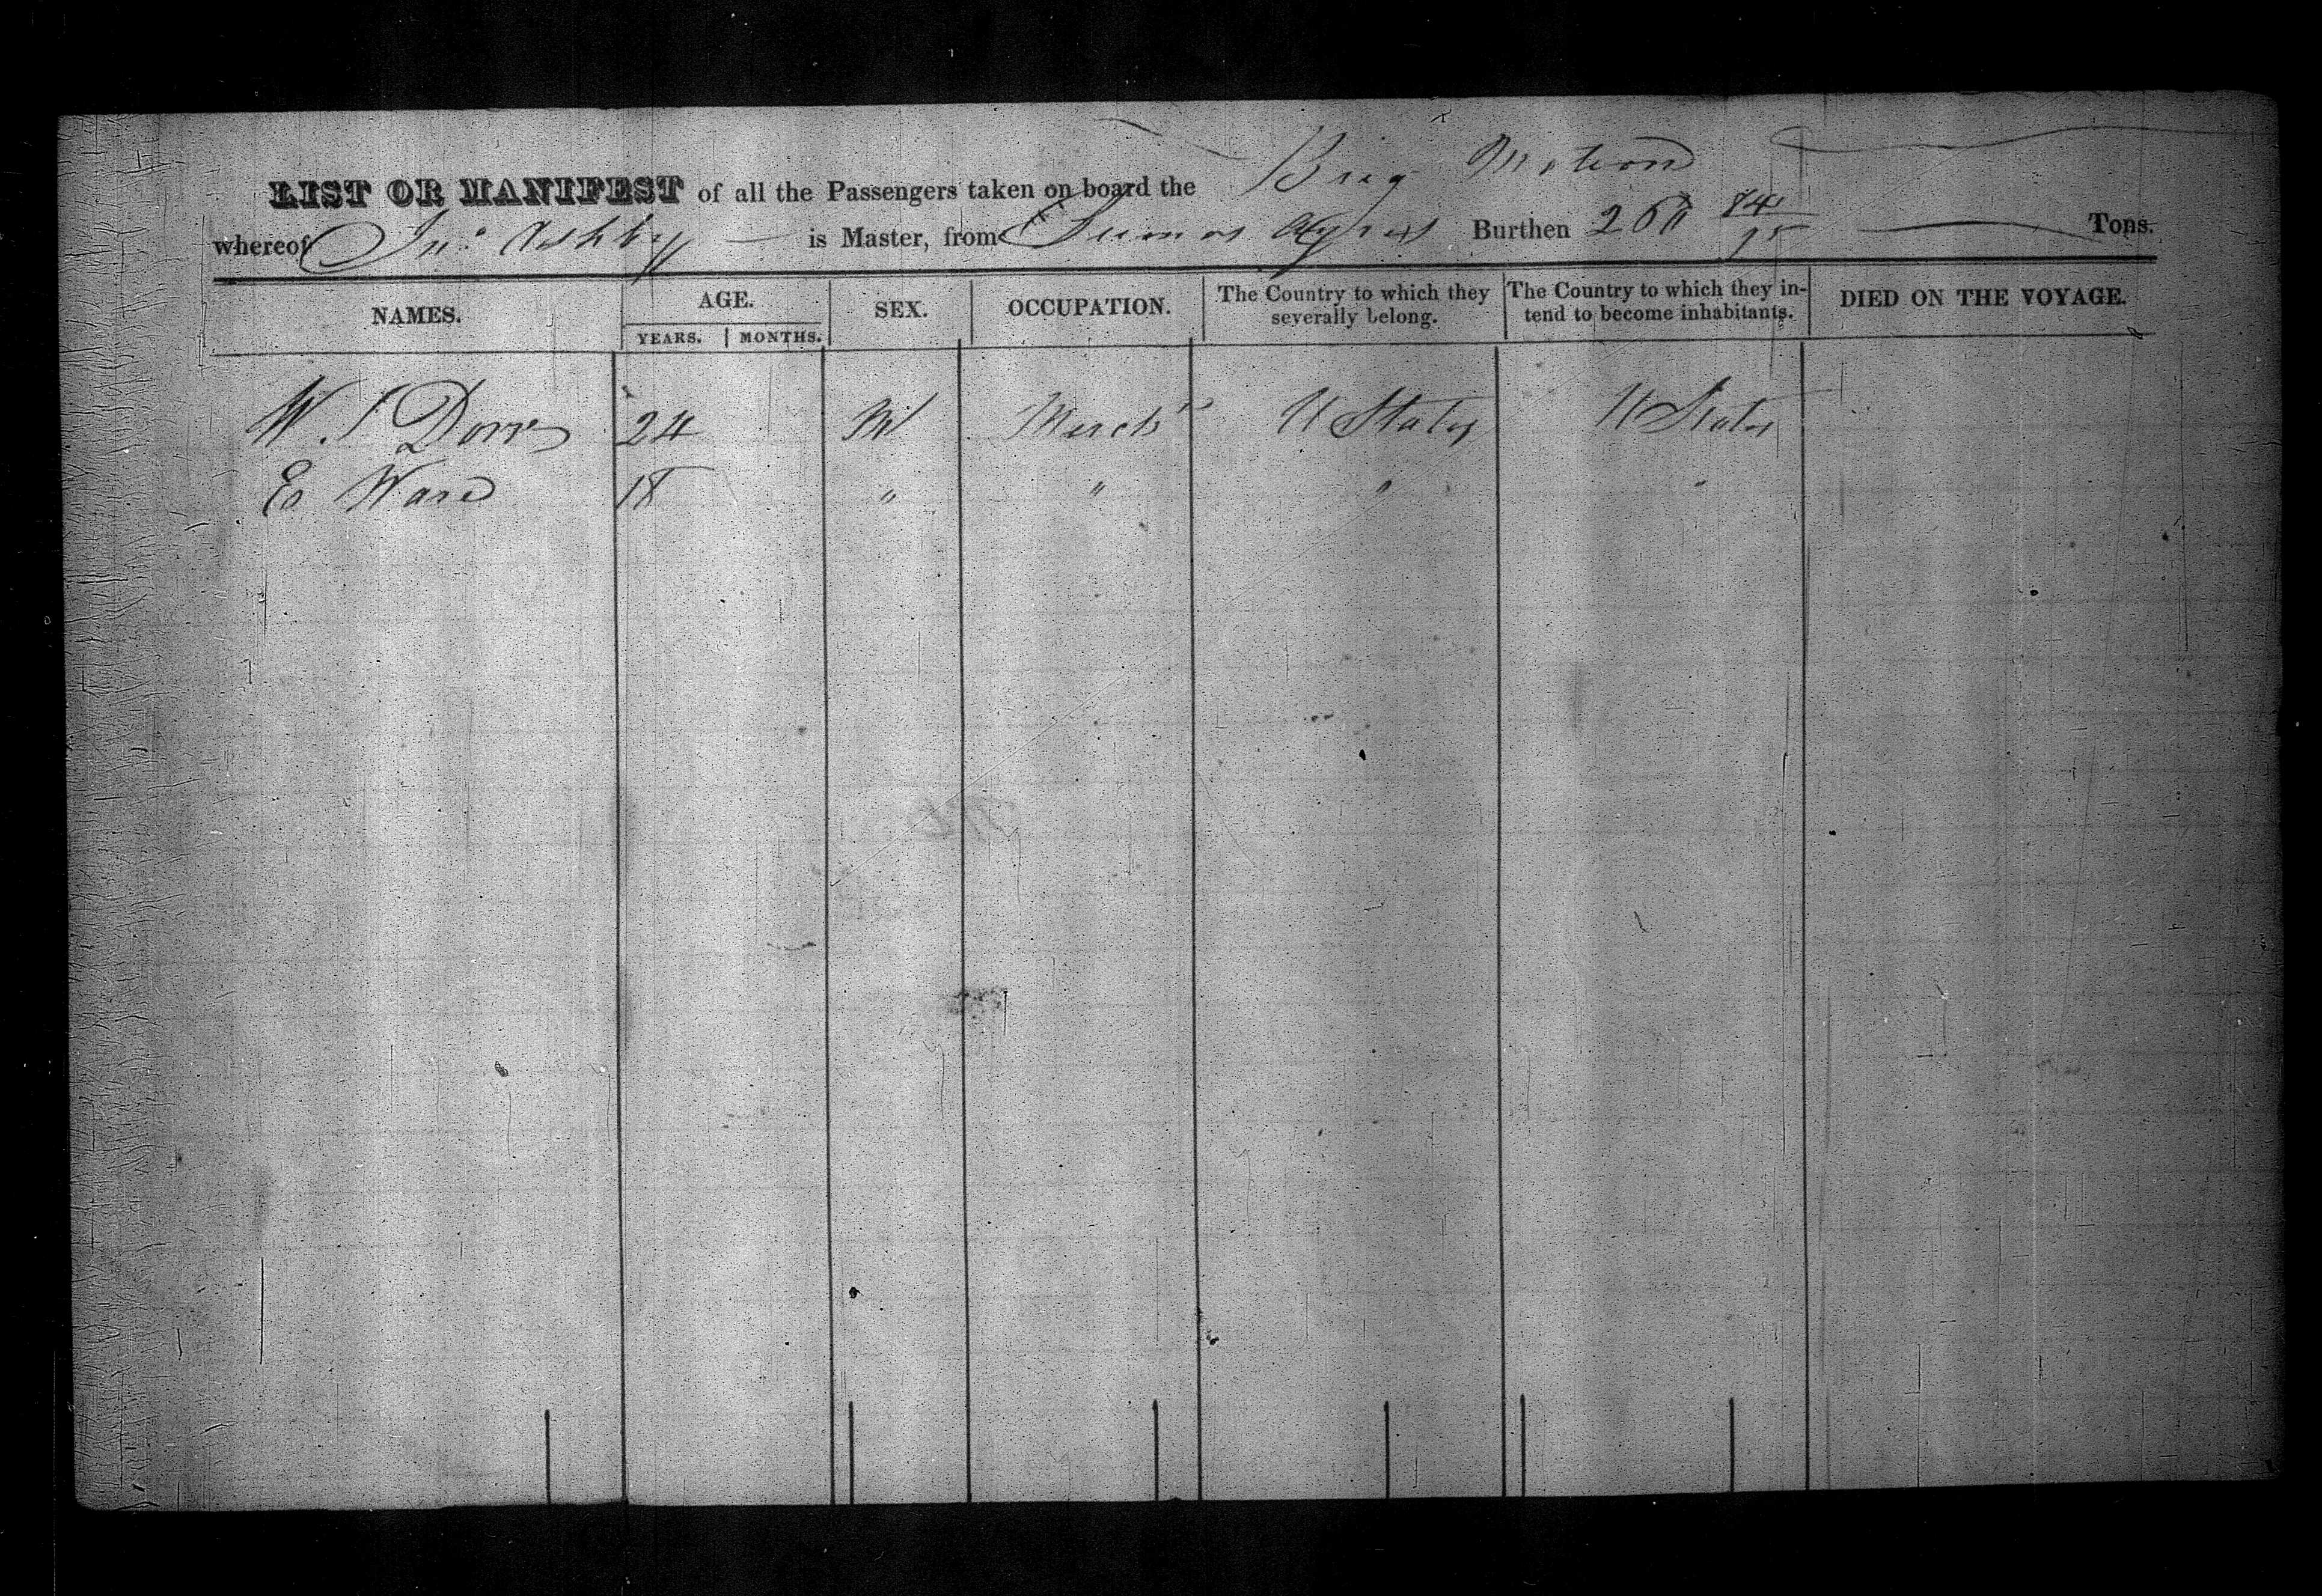 LIST OR MANIFEST of all the Passengers taken on board the Brig Motion
whereof Jno. Ashby is Master, from Buenos Ayres Burthen 84/95 Tons.
NAMES. AGE. SEX. OCCUPATION. The Country to which they severally belong. The Country to which they intend to become inhabitants. DIED ON THE VOYAGE.
YEARS. MONTHS.
W. S Dorr 24 M Merch't U States U States
E Ward 18 " " " "